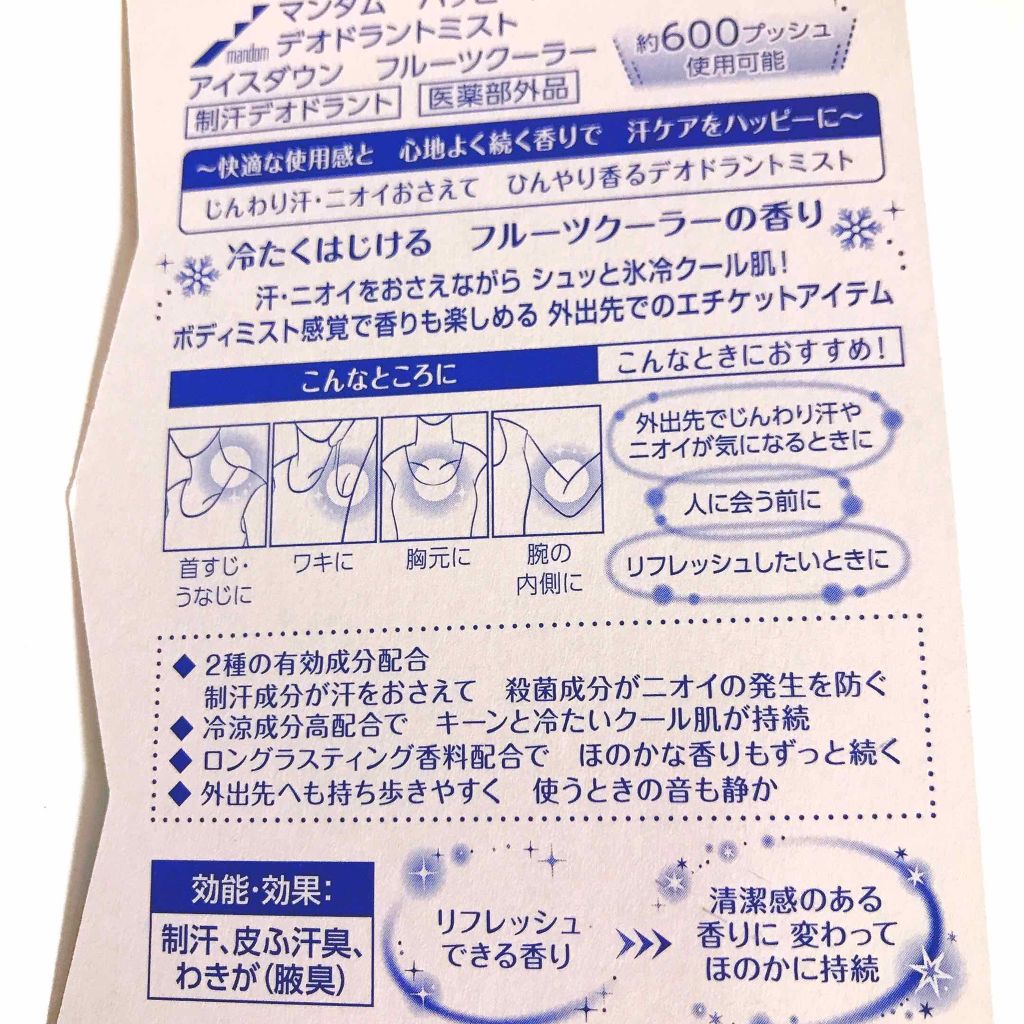 マンダム ハッピー
mandom
デオドラントミスト
アイスダウン フルーツクーラー
制汗デオドラント 医薬部外品
約600プッシュ
使用可能
～快適な使用感と 心地よく続く香りで 汗ケアをハッピーに～
じんわり汗・ニオイおさえて ひんやり香るデオドラントミスト
冷たくはじける フルーツクーラーの香り
汗・ニオイをおさえながら シュッと氷冷クール肌！
ボディミスト感覚で香りも楽しめる 外出先でのエチケットアイテム
こんなところに
首すじ・
うなじに
ワキに
胸元に
腕の
内側に
こんなときにおすすめ！
外出先でじんわり汗や
ニオイが気になるときに
人に会う前に
リフレッシュしたいときに
◆ 2種の有効成分配合
制汗成分が汗をおさえて 殺菌成分がニオイの発生を防ぐ
◆ 冷涼成分高配合で キーンと冷たいクール肌が持続
◆ ロングラスティング香料配合で ほのかな香りもずっと続く
◆ 外出先へも持ち歩きやすく 使うときの音も静か
効能・効果：
制汗、皮ふ汗臭、
わきが（腋臭）
リフレッシュ
できる香り
清潔感のある
香りに 変わって
ほのかに持続